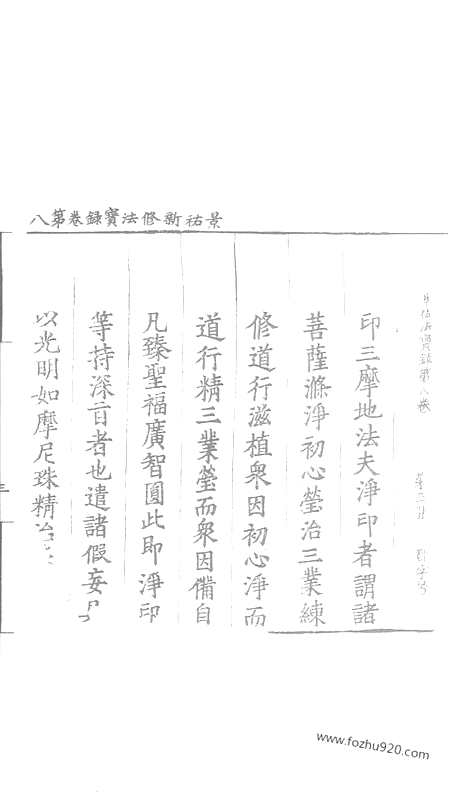 景祐新修法寶錄卷第八
印三摩地法夫淨印者謂諸
菩薩滌淨初心瑩治三業練
修道行滋植衆因初心淨而
道行精三業瑩而衆因備自
凡臻聖福廣智圓此即淨印
等持深旨者也遣諸假妄
以光明如摩尼珠精治
www.fozhu920.com